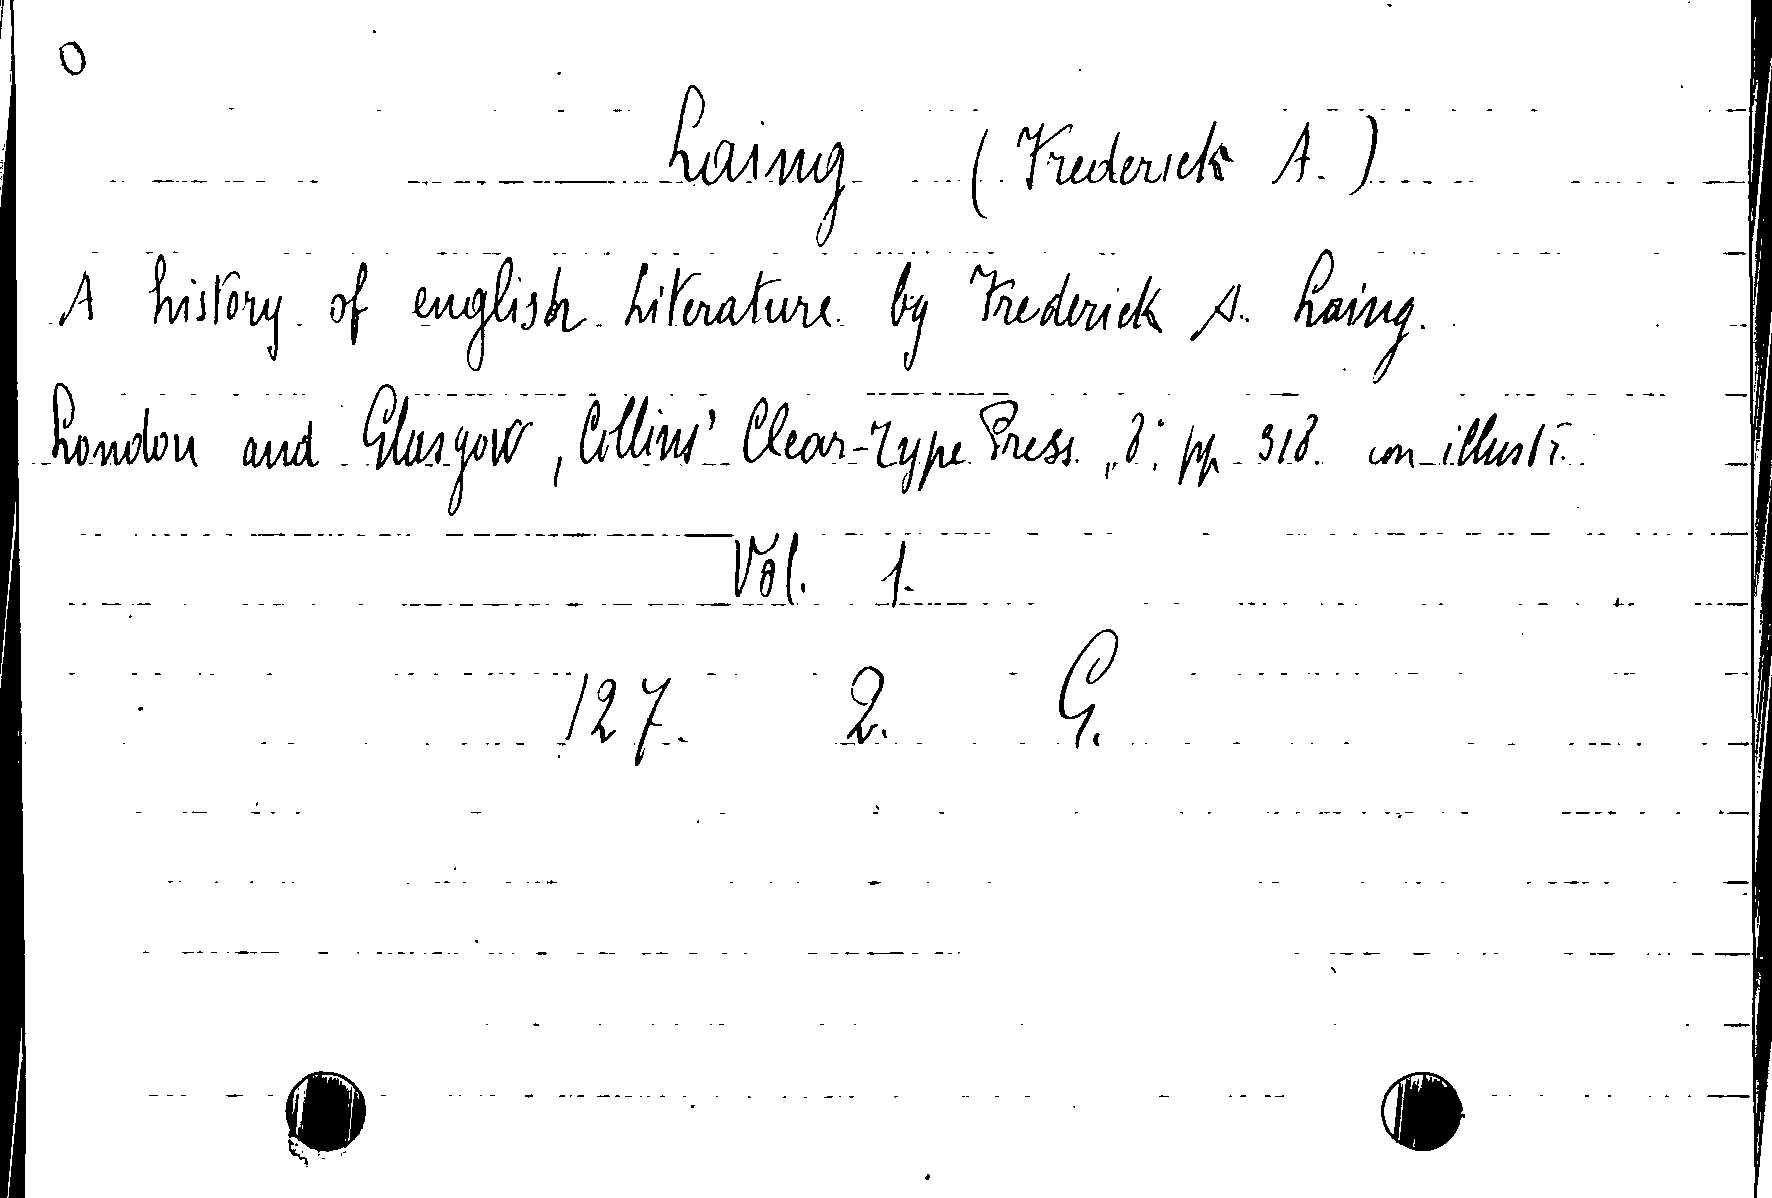 0
Laing (Frederick A.)
A history of english Literature by Frederick A. Laing.
London and Glasgow, Collins' Clear-Type Press., 8°, pp 318. con illustr.
Vol. 1.
127. 2. G.